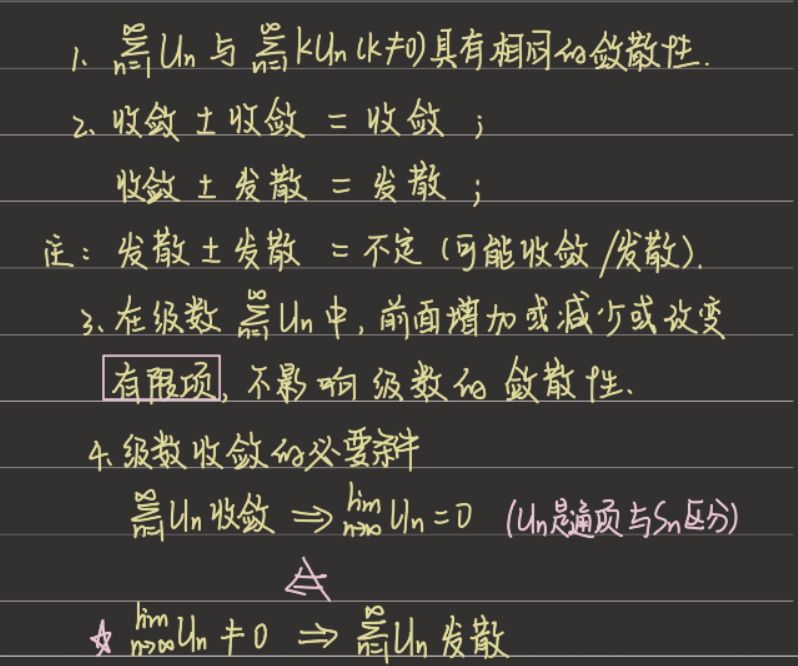 1、∞∑n=1 Un 与 ∞∑n=1 kUn (k≠0)具有相同的敛散性.
2、收敛 ± 收敛 = 收敛 ;
收敛 ± 发散 = 发散 ;
注: 发散 ± 发散 = 不定 (可能收敛/发散).
3、在级数 ∞∑n=1 Un 中, 前面增加或减少或改变
有限项, 不影响级数的敛散性.
4、级数收敛的必要条件
∞∑n=1 Un 收敛 ⇒ lim n→∞ Un = 0 (Un是通项与Sn区分)
⇍
☆ lim n→∞ Un ≠ 0 ⇒ ∞∑n=1 Un 发散